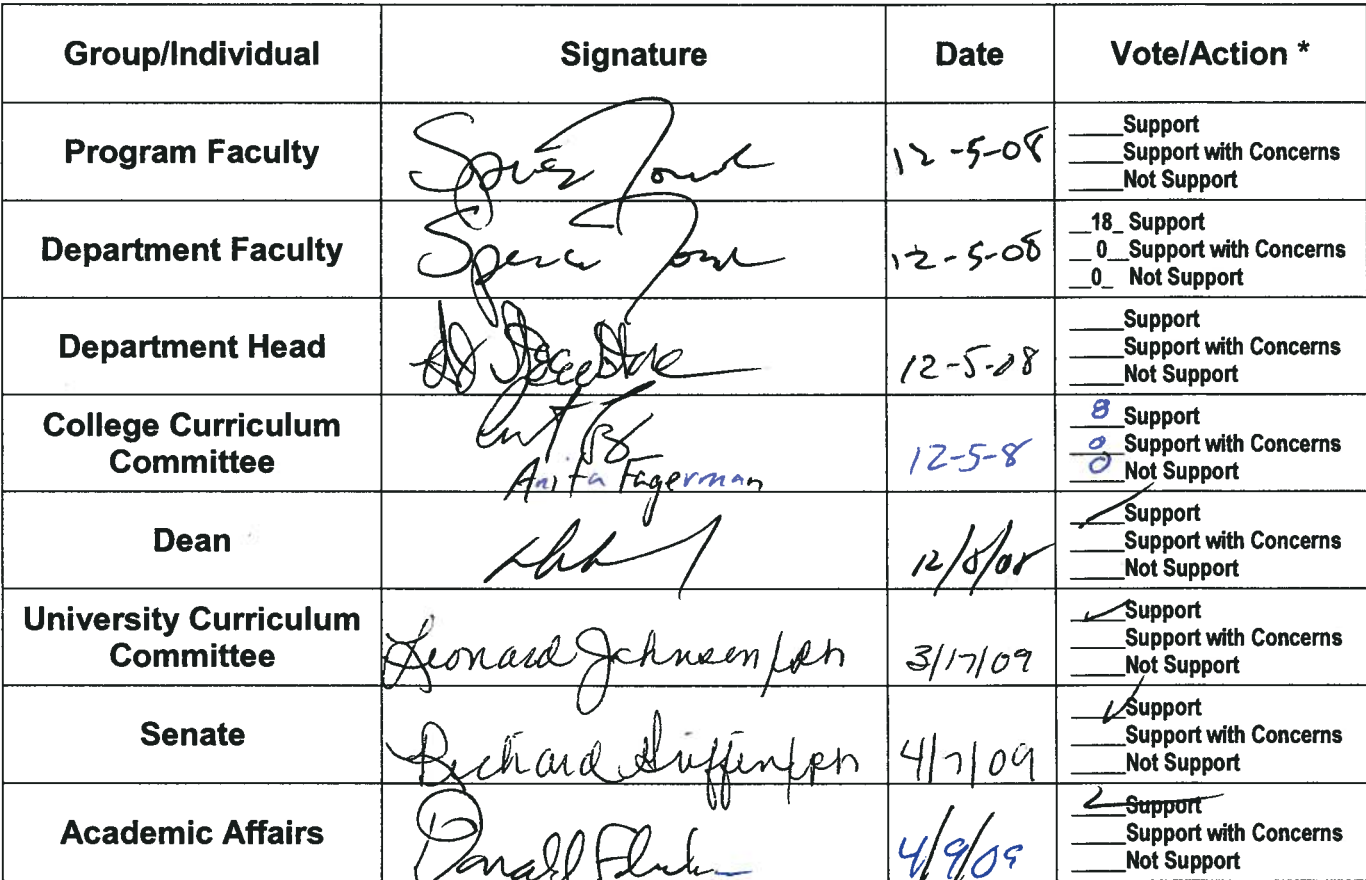 Group/Individual Signature Date Vote/Action *
Program Faculty 12-5-08
____Support
____Support with Concerns
____Not Support
Department Faculty 12-5-08
__18_ Support
__0__Support with Concerns
__0_ Not Support
Department Head 12-5-08
____Support
____Support with Concerns
____Not Support
College Curriculum
Committee
Anita Fagerman
12-5-8
8 Support
0 Support with Concerns
0 Not Support
Dean 12/8/08
____Support
____Support with Concerns
____Not Support
University Curriculum
Committee
Leonard Johnson 3/17/09
____Support
____Support with Concerns
____Not Support
Senate Richard Griffin 4/7/09
____Support
____Support with Concerns
____Not Support
Academic Affairs Donald 4/9/09
____Support
____Support with Concerns
____Not Support